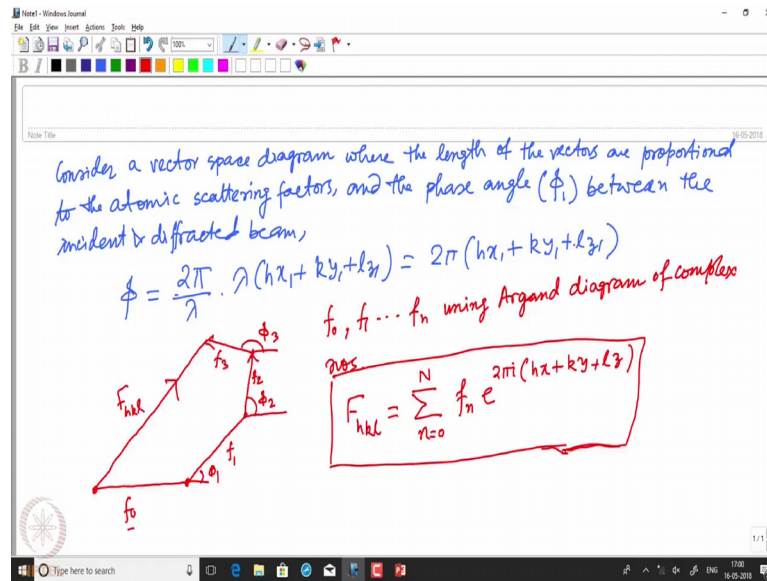 Note1 - Windows Journal
File Edit View Insert Actions Tools Help
100%
B I
Note Title
16-05-2018
Consider a vector space diagram where the length of the vectors are proportional
to the atomic scattering factors, and the phase angle (ϕ₁) between the
incident & diffracted beam,
ϕ = 2π/λ · λ(hx₁ + ky₁ + lz₁) = 2π(hx₁ + ky₁ + lz₁)
f₀, f₁ ... fₙ using Argand diagram of complex
nos
F_hkl = Σ_{n=0}^{N} fₙ e^{2πi(hx+ky+lz)}
ϕ₃
f₃
f₂
F_hkl
ϕ₂
f₁
ϕ₁
f₀
1/1
Type here to search
ENG
17:00
16-05-2018